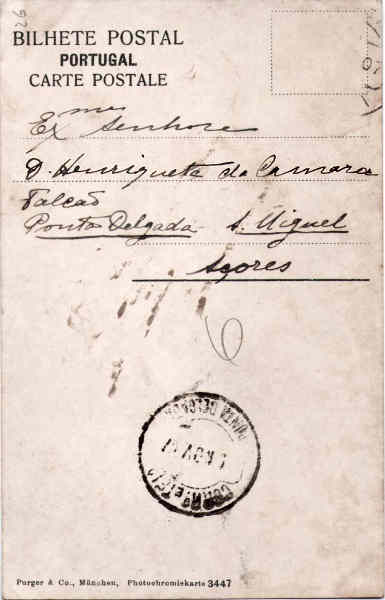 BILHETE POSTAL
PORTUGAL
CARTE POSTALE
Exmas Senhora
D. Henriqueta da Camara
Falcão
Ponta Delgada S. Miguel
Açores
6
PONTA DELGADA
Purger & Co., München, Photochromiekarte 3447